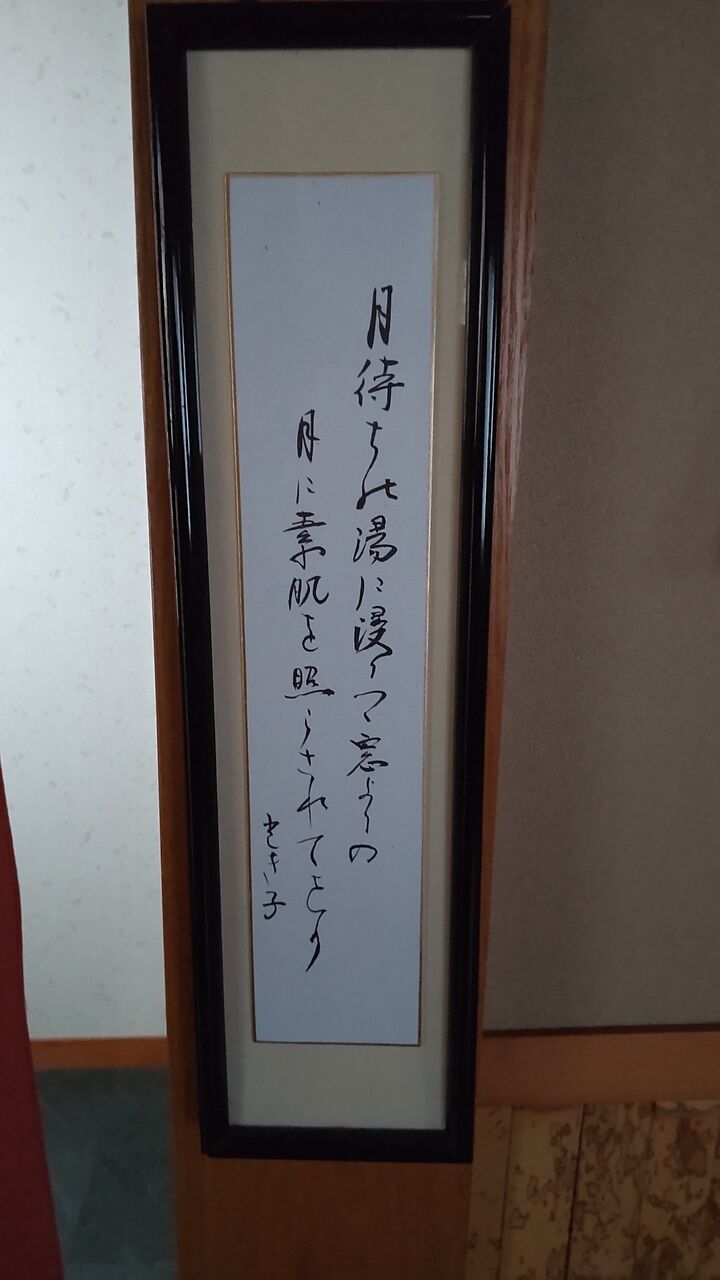 月待ちの湯に浸りつゝ窓よりの
月に素肌を照らされてをり
とき子